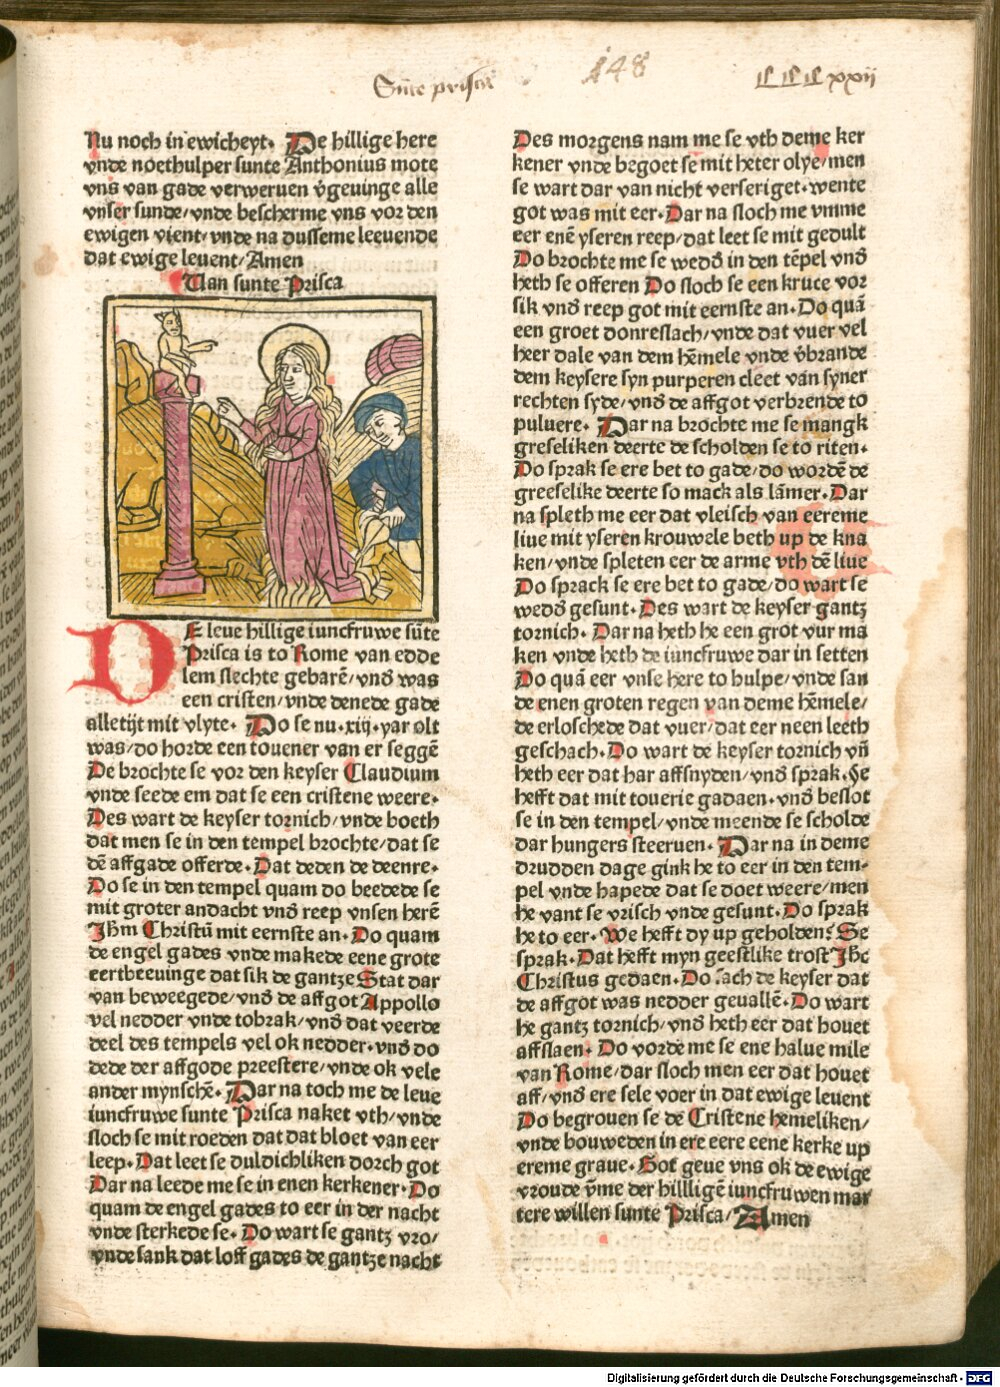 Sūte prisca
148
CCCxxij
Nu noch in ewicheyt. De hillige here
vnde noethulper sunte Anthonius mote
vns van gade verweruen v̄geuinge alle
vnser sunde/vnde bescherme vns vor den
ewigen vient/vnde na dusseme leeuende
dat ewige leuent/Amen
Uan sunte Prisca
DE leue hillige iuncfruwe sūte
Prisca is to Rome van edde
lem slechte gebarē/vnd̄ was
een cristen/vnde denede gade
alletijt mit vlyte. Do se nu.xiij.yar olt
was/do horde een touener van er seggē
De brochte se vor den keyser Claudium
vnde seede em dat se een cristene weere.
Des wart de keyser tornich/vnde boeth
dat men se in den tempel brochte/dat se
dē affgade offerde. Dat deden de deenre.
Do se in den tempel quam do beedede se
mit groter andacht vnd̄ reep vnsen herē
Jhm̄ Christū mit eernste an. Do quam
de engel gades vnde makede eene grote
eertbeeuinge dat sik de gantze Stat dar
van beweegede/vnd̄ de affgot Appollo
vel nedder vnde tobrak/vnd̄ dat veerde
deel des tempels vel ok nedder.vnd̄ do
dede der affgode preestere/vnde ok vele
ander mynschē. Dar na toch me de leue
iuncfruwe sunte Prisca naket vth/vnde
sloch se mit roeden dat dat bloet van eer
leep. Dat leet se duldichliken dorch got
Dar na leede me se in enen kerkener. Do
quam de engel gades to eer in der nacht
vnde sterkede se. Do wart se gantz vro/
vnde sank dat loff gades de gantze nacht
Des morgens nam me se vth deme ker
kener vnde begoet se mit heter olye/men
se wart dar van nicht verseriget.wente
got was mit eer. Dar na sloch me vmme
eer enē yseren reep/dat leet se mit gedult
Do brochte me se wedd̄ in den tēpel vnd̄
heth se offeren Do sloch se een kruce vor
sik vnd̄ reep got mit eernste an. Do quā
een groet donreslach/vnde dat vuer vel
heer dale van dem hēmele vnde v̄brande
dem keysere syn purperen cleet van syner
rechten syde/vnd̄ de affgot verbrende to
puluere. Dar na brochte me se mangk
greseliken deerte de scholden se to riten.
Do sprak se ere bet to gade/do wordē de
greeselike deerte so mack als lāmer. Dar
na spleth me eer dat vleisch van eereme
liue mit yseren krouwele beth up de kna
ken/vnde spleten eer de arme vth dē liue
Do sprack se ere bet to gade/do wart se
wedd̄ gesunt. Des wart de keyser gantz
tornich. Dar na heth he een grot vur ma
ken vnde heth de iuncfruwe dar in setten
Do quā eer vnse here to hulpe/vnde san
de enen groten regen van deme hēmele/
de erloschede dat vuer/dat eer neen leeth
geschach. Do wart de keyser tornich vn̄
heth eer dat har affsnyden/vnd̄ sprak. Se
hefft dat mit touerie gadaen.vnd̄ beslot
se in den tempel/vnde meende se scholde
dar hungers steeruen. Dar na in deme
drudden dage gink he to eer in den tem-
pel vnde hapede dat se doet weere/men
he vant se vrisch vnde gesunt. Do sprak
he to eer. We hefft dy up geholden? Se
sprak. Dat hefft myn geestlike trost Jhc̄
Christus gedaen. Do sach de keyser dat
de affgot was nedder geuallē. Do wart
he gantz tornich/vnd̄ heth eer dat houet
affslaen. Do vorde me se ene halue mile
van Rome/dar sloch men eer dat houet
aff/vnd̄ ere sele voer in dat ewige leuent
Do begrouen se de Cristene hemeliken/
vnde bouweden in ere eere eene kerke up
ereme graue. Got geue vns ok de ewige
vroude v̄me der hilllige iuncfruwen mar
tere willen sunte Prisca/Amen
Digitalisierung gefördert durch die Deutsche Forschungsgemeinschaft - DFG